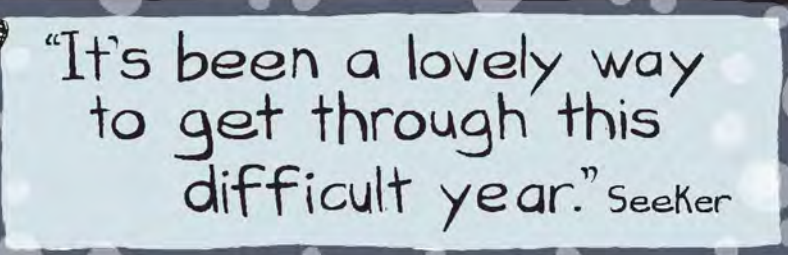 “It's been a lovely way
to get through this
difficult year.” Seeker